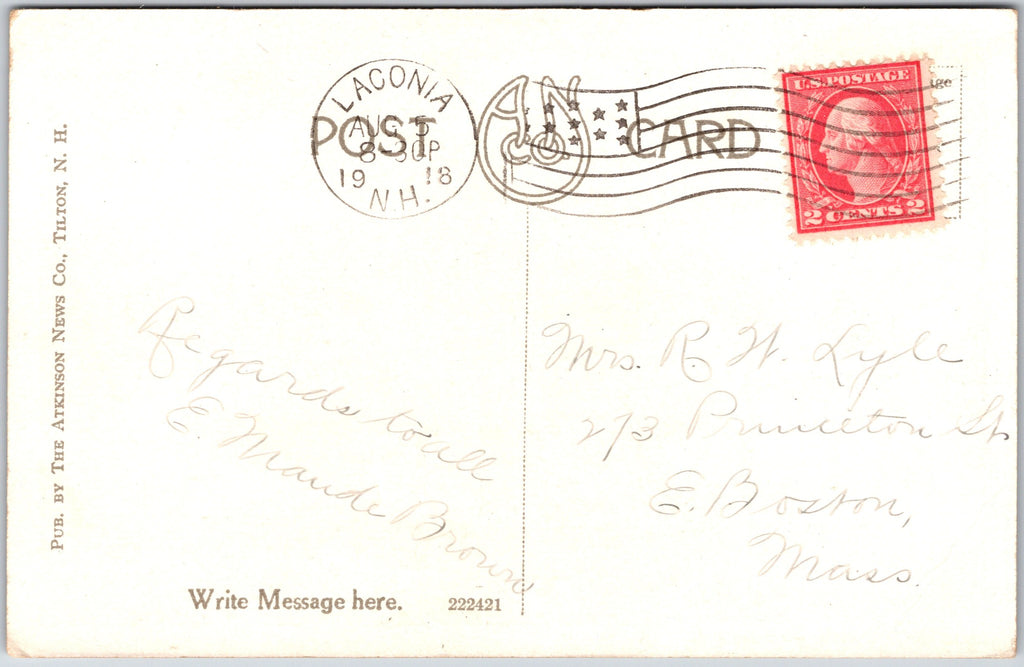 LACONIA
AUG 5
8 30P
19 18
N.H.
POST CARD
U.S. POSTAGE
2 CENTS 2
PUB. BY THE ATKINSON NEWS CO., TILTON, N. H.
Regards to all
E. Maude Brown
Mrs. R. W. Lyle
273 Princeton St
E. Boston,
Mass.
Write Message here.
222421